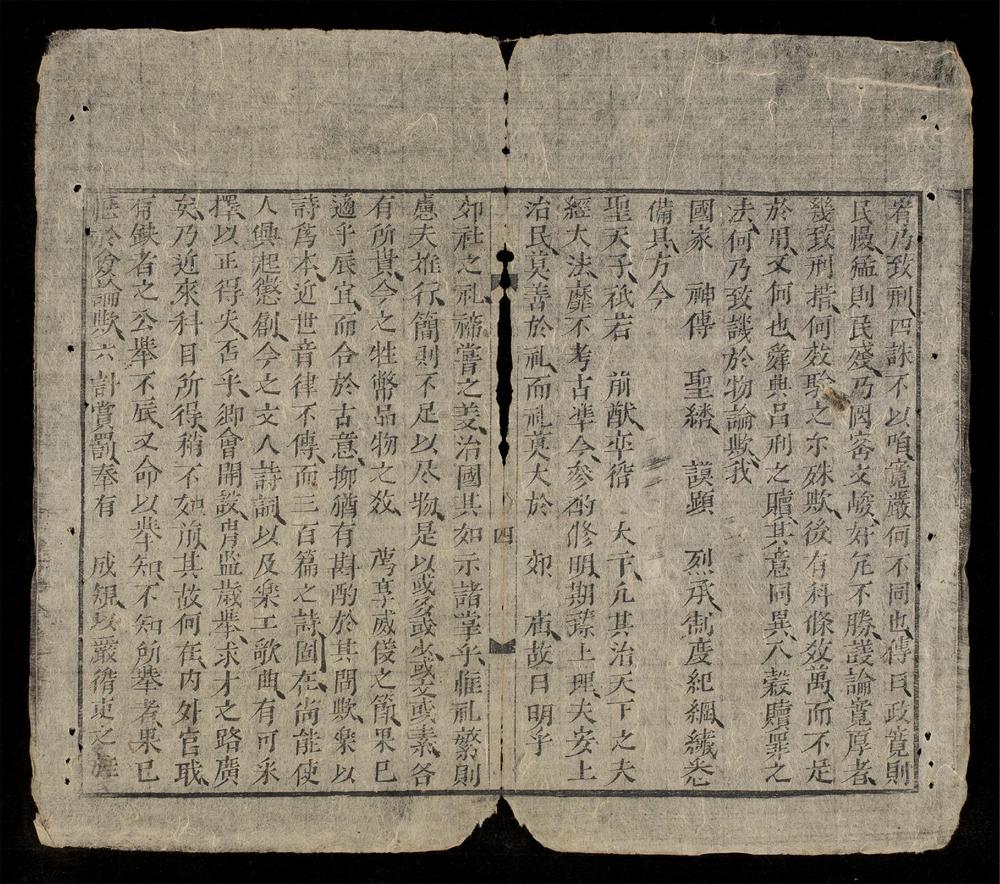 者乃致刑四誅不以啫寬嚴何不同也傳曰政寬則
民慢猛則民殘乃因審文峻好𠃣不勝議論寬厚者
幾致刑措何效驗之尓殊歟後有科條效萬而不足
於用又何也舜典吕刑之贖其意同異入榖贖罪之
法何乃致譏於物論歟我
國家 神傳 聖繼 謨顕 烈承制度紀綱纎悉
備具方今
聖天子祇若 前猷率循 大卞凡其治天下之夫
經大法靡不考古準今參酌修明期臻上理夫安上
治民莫善於礼而礼莫大於 郊 庙故曰明乎
四
郊社之礼禘嘗之义治國其如示諸掌乎惟礼繁則
慮夫难行簡則不足以尽物是以或多或少或文或素各
有所貴今之牲幣品物之数 薦享威儀之節果已
適乎辰宜而合於古意抑猶有斟酌於其間歟樂以
詩爲本近世音律不傳而三百篇之詩固在尚能使
人興起懲創今之文人詩詞以及樂工歌曲有可采
擇以正得失否乎鄉會開設胄監歲舉求才之路廣
矣乃近來科目所得稍不如前其故何在内外官職
有缺者之公舉不辰又命以舉知不知所舉者果已
歴於僉論歟六計賞罰奉有 成規以嚴循吏之